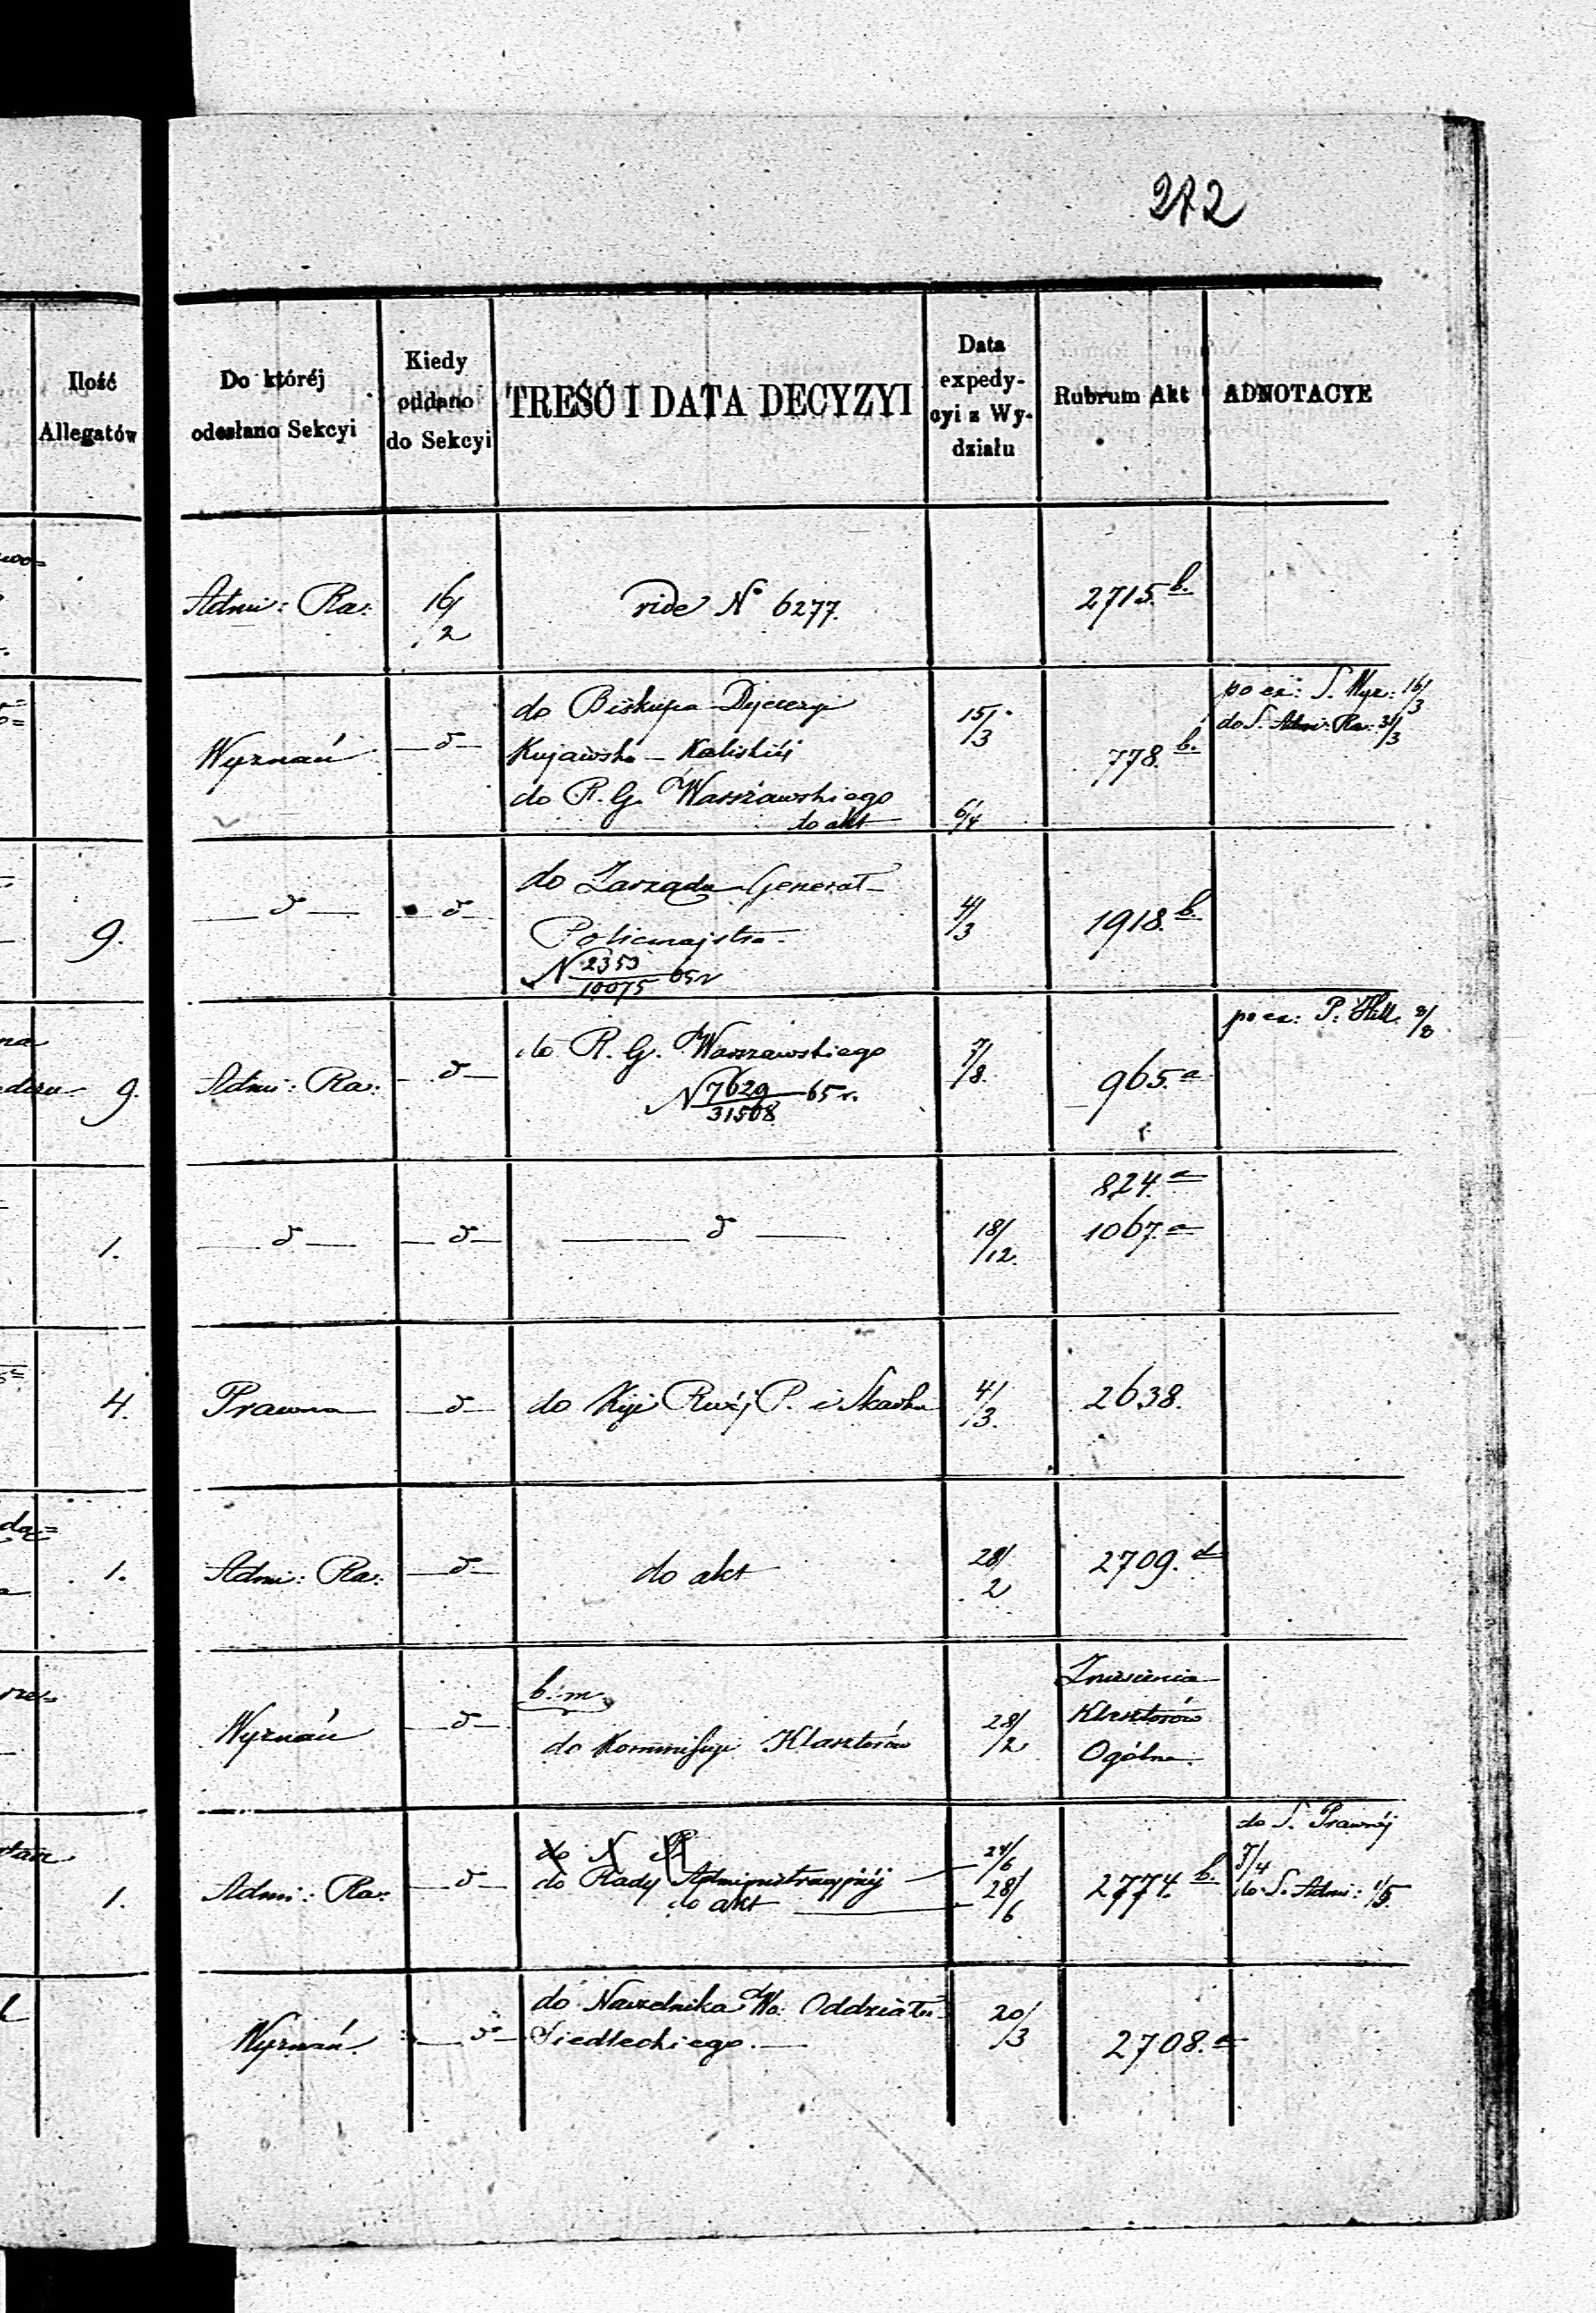 272
Ilość
Allegatów
Do któréj
odesłano Sekcyi
Kiedy
oddano
do Sekcyi
TREŚĆ I DATA DECYZYI
Data
expedy-
cyi z Wy-
działu
Rubrum Akt
ADNOTACYE
Admi: Ra: 16/2 vide No 6277. 2715.b.
Wyznań — d —
do Biskupa Dyecezyi
Kujawsko – Kaliskiéj
do R. G. Warszawskiego
do akt
15/3
6/4
778.b.
po ex: S. Wyz: 16/3
do S. Admi: Ra: 31/3
9. — d — — d —
do Zarządu Generał-
Policmajstra.
N 2353/10075 65 r
4/3
1918.b.
na
9. Admi: Ra: — d —
do R. G. Warszawskiego
N 7629/31508 65 r.
7/8.
965.a
po ex: P. 8/8
1. — d — — d — — d — 18/12.
824.a
1067.a
4. Prawna — d — do P. i Skarbu 4/3. 2638.
1. Admi: Ra: — d — do akt 28/2 2709.
Wyznań — d —
b. m.
do Kommissyi Klasztorów
28/2
Zniesienia
Klasztorów
Ogólne.
1. Admi: Ra: — d —
do N
do Rady Administracyjnéj
do akt
24/6
28/6
2774.b.
do S. Prawnéj
7/4
do S. Admi: 1/5.
Wyznań. — d —
do Naczelnika Wo: Oddziału
Siedleckiego. —
20/3
2708.